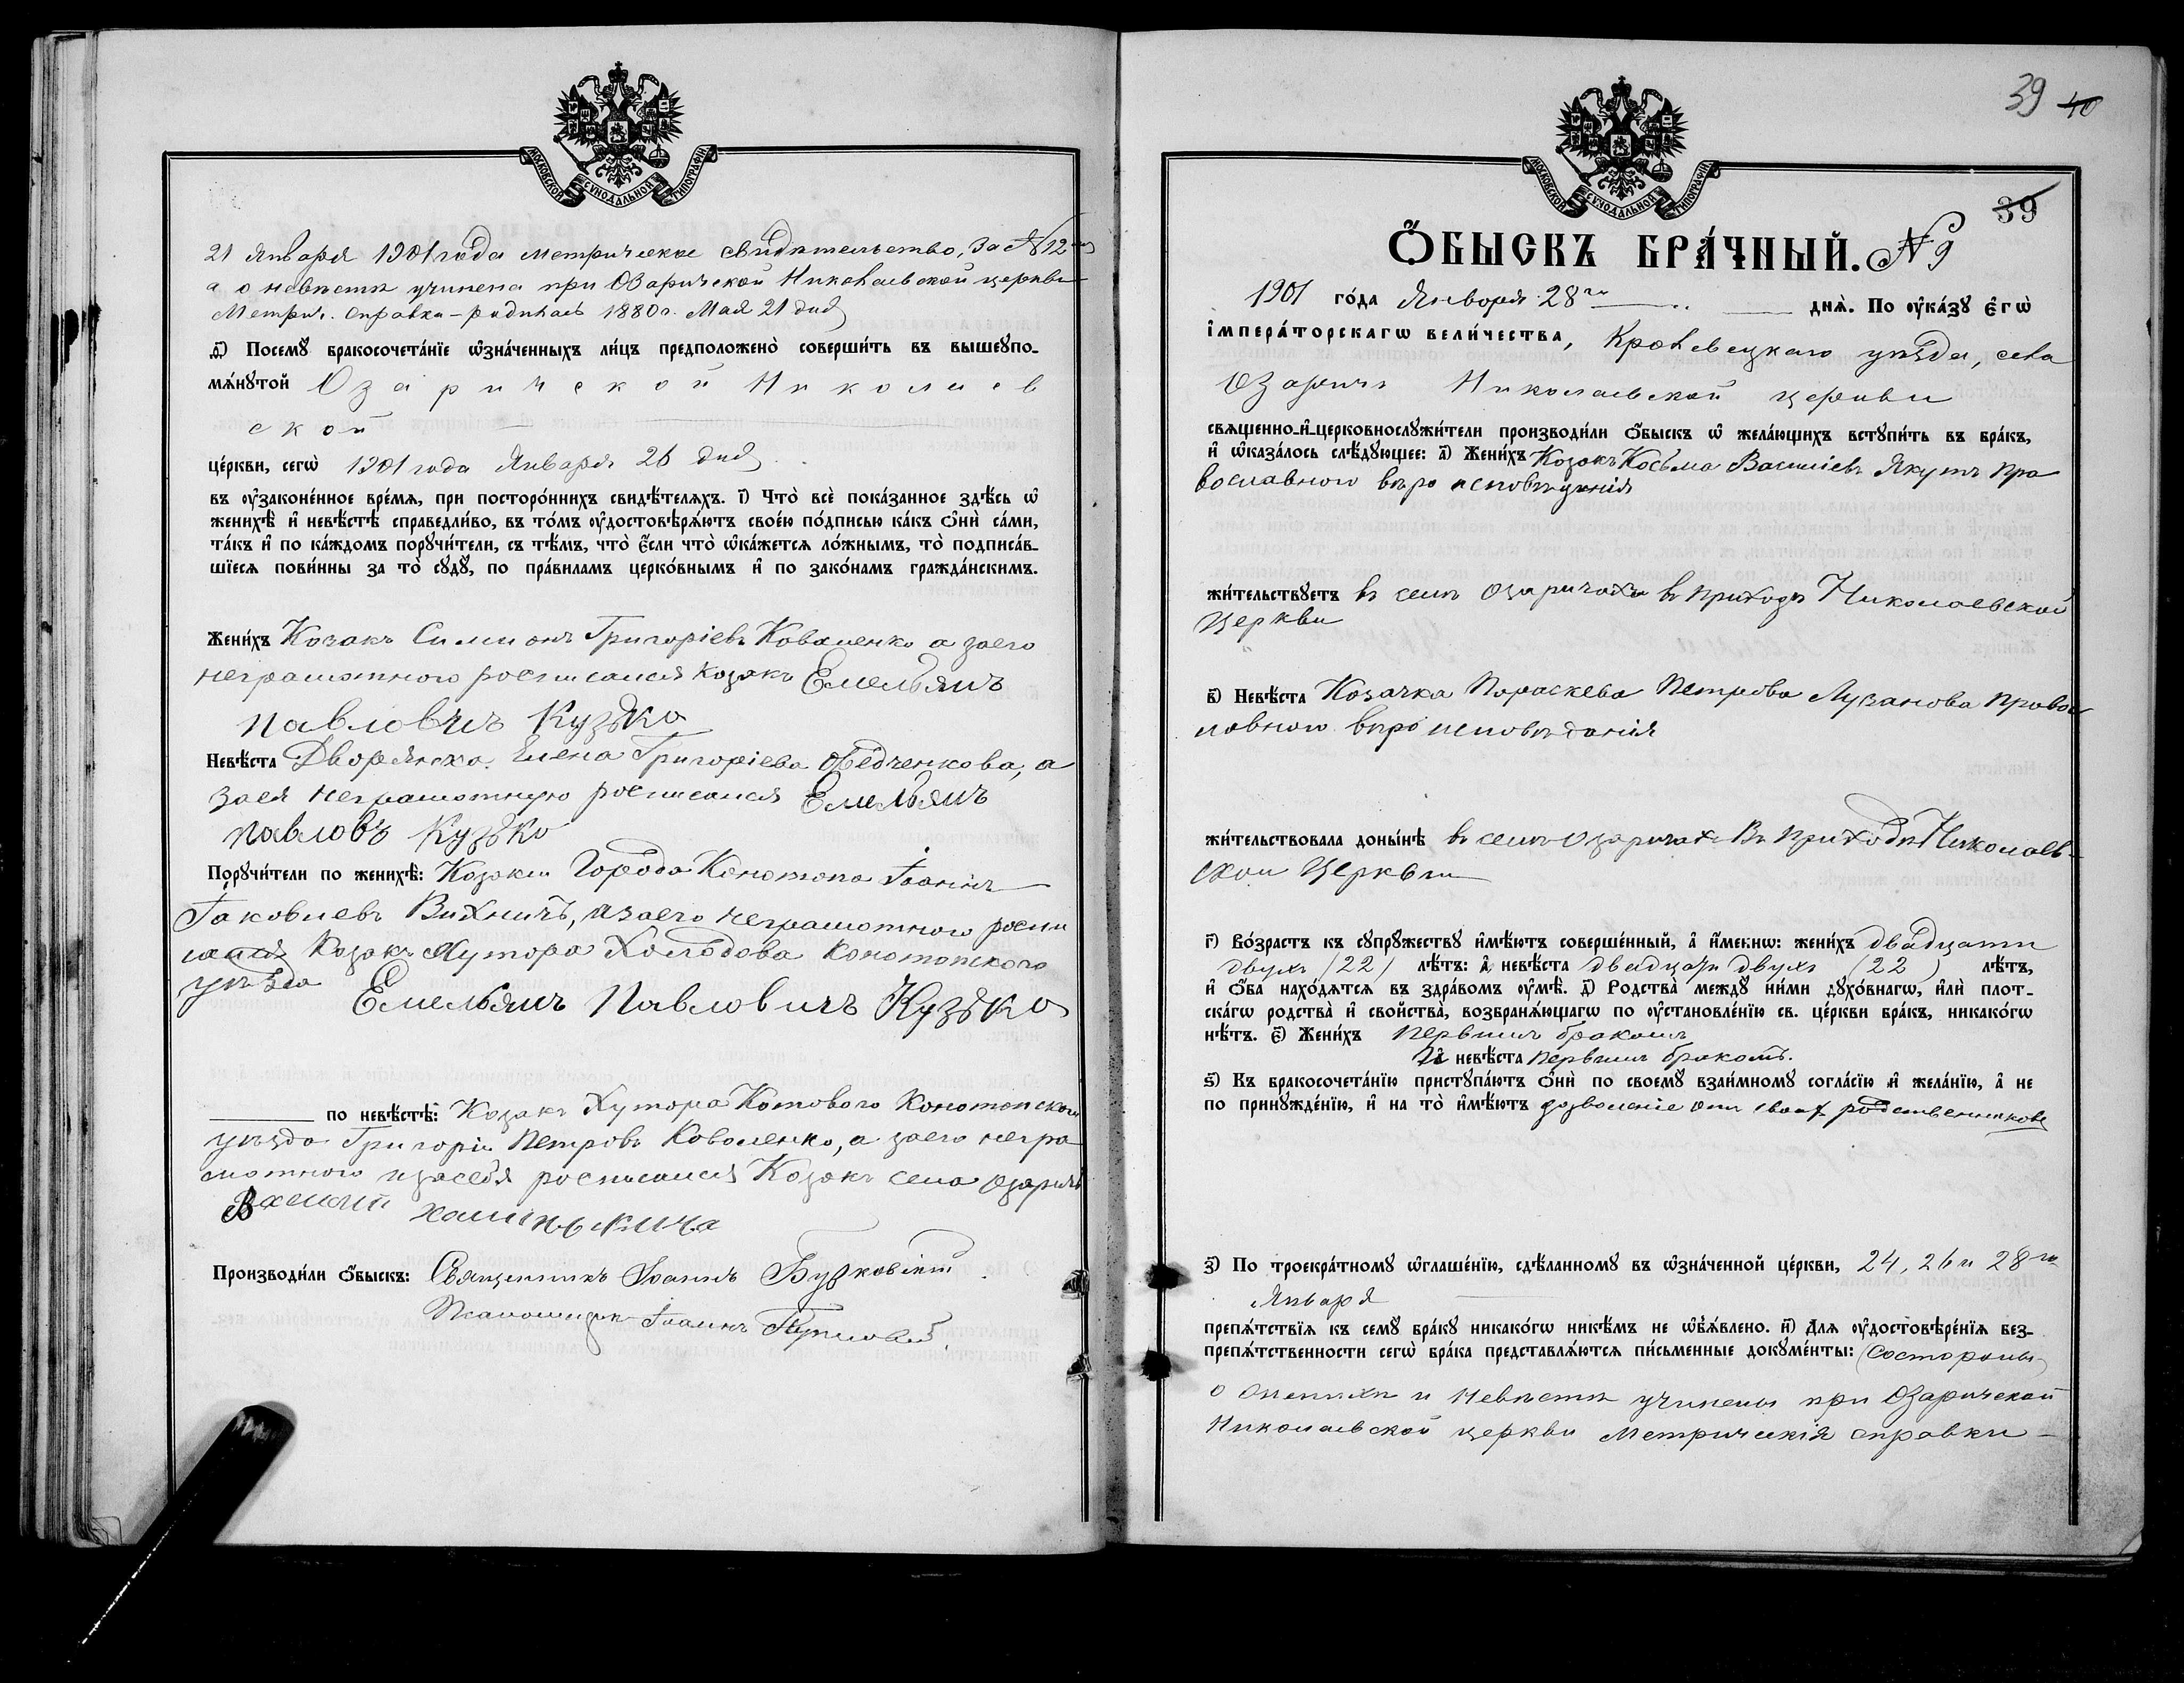 МОСКОВСКОЙ СѴНОДАЛЬНОЙ ТИПОГРАФІИ
21 Января 1901 года метрическое свидѣтельство, за № 12
а о невѣстѣ учинена при Озаричской Николаевской церкви
Метрич. справка – родилась 1880 г. Мая 21 дня
д҃) Посемꙋ бракосочета́нїе ѡ҆зна́ченныхъ ли́цъ предположено̀ соверши́ть въ вышеꙋпо-
мѧ́нꙋтой Озаричской Николаев
ской
це́ркви, сегѡ̀ 1901 года Января 26 дня
въ ᲂу҆зако́не́нное вре́мѧ, при посторо́ннихъ свидѣ́телѧхъ. і҃) Что̀ всѐ пока́занное здѣ́сь ѡ҆
женихѣ̀ и҆ невѣ́стѣ справедли́во, въ то́мъ ᲂу҆достовѣрѧ́ютъ свое́ю по́дписью ка́къ ѻ҆нѝ са́ми,
та́къ и҆ по ка́ждомъ порꙋчи́тели, съ тѣ́мъ, что̀ є҆́сли что̀ ѡ҆ка́жетсѧ ло́жнымъ, то̀ подписа́в-
шїесѧ пови́нны за то̀ сꙋдꙋ̀, по пра́виламъ церко́внымъ и҆ по зако́намъ гражда́нскимъ.
Жени́хъ Козакъ Симионъ Григоріевъ Коваленко а заего
неграмотного росписался козакъ Емельянъ
Павловичъ Кузько
Невѣ́ста Дворянска Елена Григоріева Ѳедченкова, а
заея неграмотную росписался Емельянъ
Павловъ Кузько
Порꙋчи́тели по женихѣ̀: Козаки Города Конотопа Іоаннъ
Іаковлевъ Вихничъ, азаего неграмотного роспи
сался Козакъ Хутора Холодова Конотопского
уѣзда Емельянъ Павловичъ Кузько
по невѣ́стѣ: Козакъ Хутора Котового Конотопского
уѣзда Григорій Петровъ Коваленко, а заего негра
мотного изасебя росписался Козакъ села Озаричъ
Производи́ли ѻ҆́быскъ: Священникъ Іоаннъ
Псаломщик Іоаннъ
39 40
МОСКОВСКОЙ СѴНОДАЛЬНОЙ ТИПОГРАФІИ
39
ѺБЫСКЪ БРА́ЧНЫЙ. № 9
1901 го́да Января 28го днѧ̀. По ᲂу҆ка́зꙋ є҆гѡ̀
і҆мпера́торскагѡ вели́чества, Кролевецкаго уѣзда, села
Озаричъ Николаевской церкви
свѧщенно-и҆-церковнослꙋжи́тели производи́ли ѻ҆́быскъ ѡ҆ жела́ющихъ встꙋпи́ть въ бра́къ,
и҆ ѡ҆каза́лось слѣ́дꙋющее: а҃) Жени́хъ Козакъ Косьма Василіевъ Якутъ пра
вославного вѣро исповѣданія
жи́тельствꙋетъ въ селѣ Озаричахъ въ приходѣ Николаевской
Церкви
в҃) Невѣ́ста Козачка Параскева Петрова Лузанова правос
лавного вѣро исповѣданія
жи́тельствовала доны́нѣ въ селѣ Озаричахъ Въ приходѣ Николаев-
ской Церкви
г҃) Во́зрастъ къ сꙋпрꙋ́жествꙋ и҆мѣ́ютъ соверше́нный, а҆ и҆́меннѡ: жени́хъ двадцати
двухъ (22) лѣ́тъ: а҆ невѣ́ста двадцати двухъ (22) лѣ́тъ,
и҆ ѻ҆́ба нахо́дѧтсѧ въ здра́вомъ ᲂу҆мѣ̀. д҃) Родства̀ междꙋ и҆́ми дꙋхо́внагѡ, и҆лѝ плот-
ска́гѡ родства̀ и҆ свойства̀, возбранѧ́ющагѡ по ᲂу҆становле́нїю св. це́ркви бра́къ, никако́гѡ
нѣ́тъ. є҃) Жени́хъ первымъ бракомъ
а҆ невѣ́ста первымъ бракомъ.
ѕ҃) Къ бракосочета́нїю пристꙋпа́ютъ ѻ҆нѝ по своемꙋ̀ взаи́мномꙋ согла́сїю и҆ жела́нїю, а҆ не
по принꙋжде́нїю, и҆ на то̀ и҆мѣ́ютъ дозволеніе отъ своих родственниковъ
з҃) По троекра́тномꙋ ѡ҆глаше́нїю, сдѣ́ланномꙋ въ ѡ҆зна́ченной це́ркви, 24, 26 и 28го
Января
препѧ́тствїѧ къ семꙋ̀ бра́кꙋ никако́гѡ никѣ́мъ не ѡ҆б̾ѧ́влено. и҃) Длѧ ᲂу҆достовѣре́нїѧ без-
препѧ́тственности сегѡ̀ бра́ка представлѧ́ютсѧ пи́сьменные докꙋме́нты: (состороны
о женихѣ и невѣстѣ учинены при Озаричской
Николаевской церкви Метрическія справки –